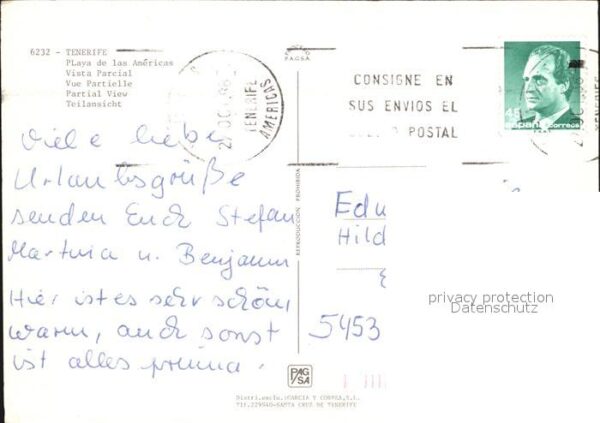 6232 - TENERIFE
PLaya de las Américas
Vista Parcial
Vue Partielle
Partial View
Teilansicht
PAGSA
TENERIFE
AMERICAS
CONSIGNE EN
SUS ENVIOS EL
POSTAL
correos
TENERIFE
Viele liebe
Urlaubsgrüße
senden Euch Stefan
Martina u. Benjamin
Hier ist es sehr schön,
warm, auch sonst
ist alles prima.
REPRODUCCION PROHIBIDA
Edu
Hild
5453
privacy protection
Datenschutz
PAG
SA
Distri.exclu.:GARCIA Y CORREA,S.L.
Tlf.229940-SANTA CRUZ DE TENERIFE